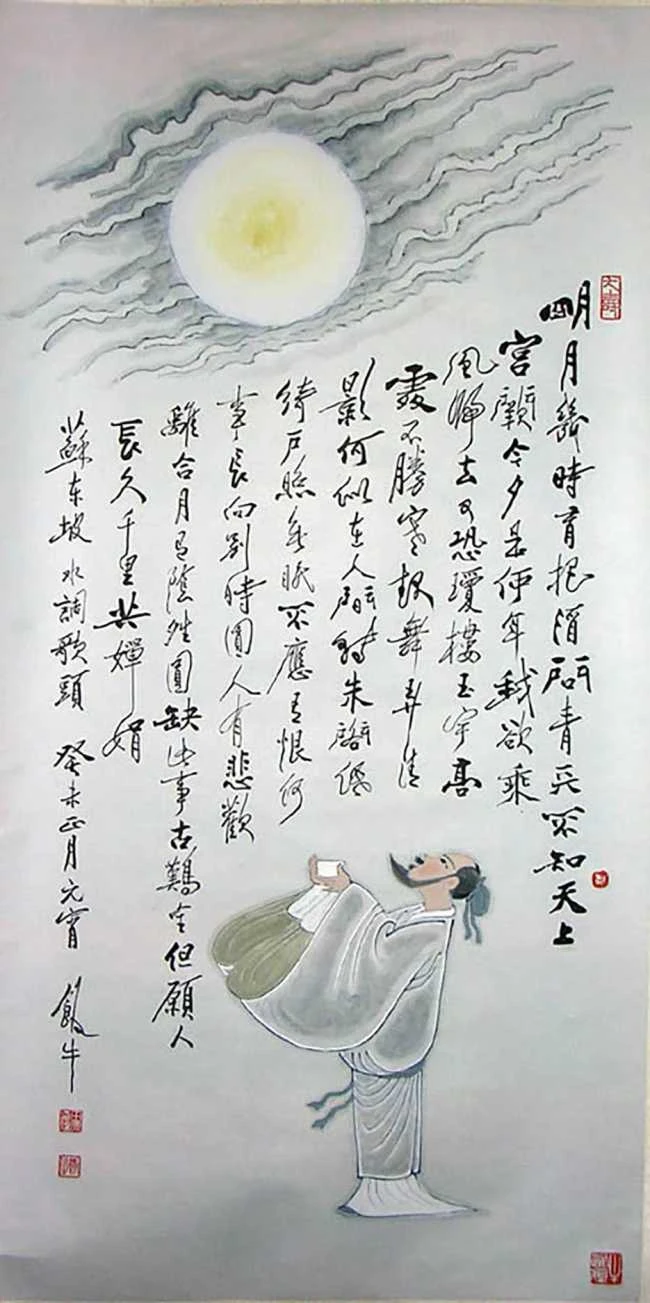 明月幾時有把酒問青天不知天上
宮闕今夕是何年我欲乘
風歸去又恐瓊樓玉宇高
處不勝寒起舞弄清
影何似在人間轉朱閣低
綺戶照無眠不應有恨何
事長向別時圓人有悲歡
離合月有陰晴圓缺此事古難全但願人
長久千里共嬋娟
蘇东坡水調歌頭 癸未正月元宵 飯牛